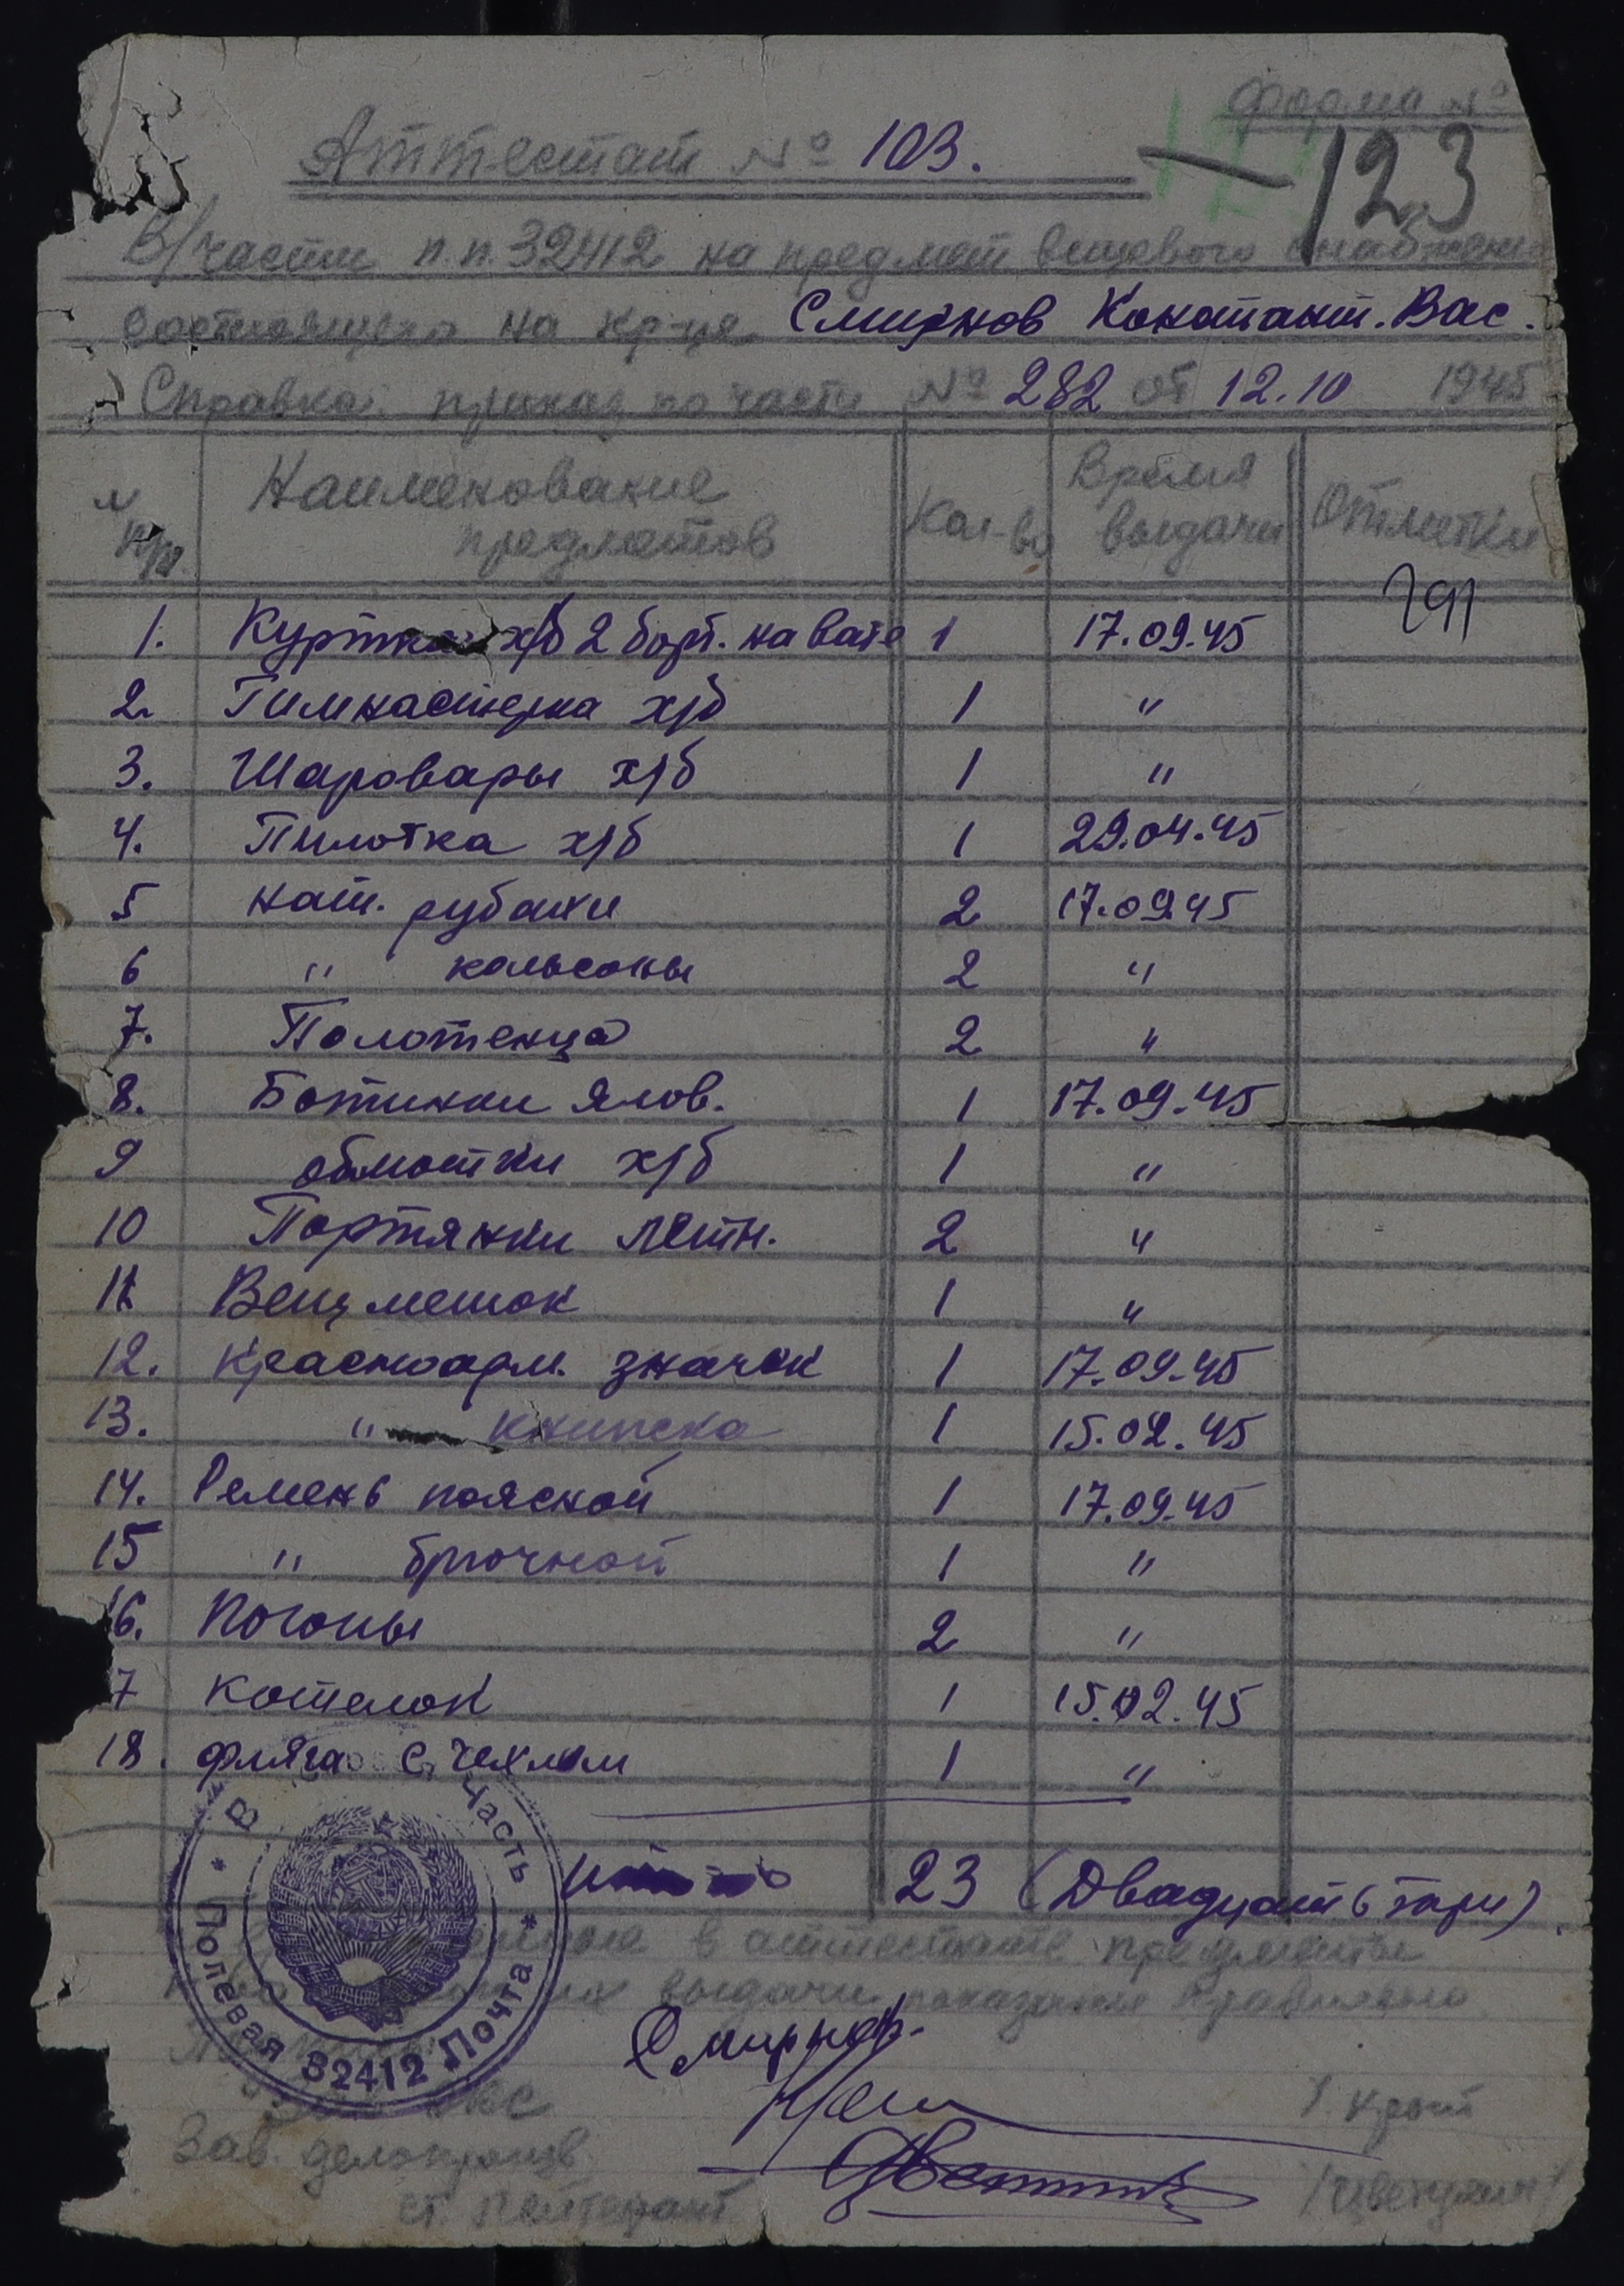 Форма №
Аттестат № 103.
123
В/части п.п. 32412 на предмет вещевого снабжения
состоящего на кр-ца Смирнов Констант. Вас.
Справка: приказ по части № 282 от 12.10 1945
№ п/п. Наименование предметов Кол-во Время выдачи Отметки
1. Куртка х/б 2 борт. на вате 1 17.09.45
2. Гимнастерка х/б 1 "
3. Шаровары х/б 1 "
4. Пилотка х/б 1 29.04.45
5 нат. рубахи 2 17.09.45
6 " кальсоны 2 "
7. Полотенца 2 "
8. Ботинки ялов. 1 17.09.45
9 обмотки х/б 1 "
10 Портянки летн. 2 "
11 Вещмешок 1 "
12. Красноарм. значок 1 17.09.45
13. " книжка 1 15.02.45
14. Ремень поясной 1 17.09.45
15 " брючной 1 "
16. Погоны 2 "
17 Котелок 1 15.02.45
18. фляга с чехлом 1 "
23 (Двадцать три)
в аттестате предметы
выдачи показания правильно
Смирнов.
В Часть * Полевая Почта * 32412
Зав. делопроизв.
ст. лейтенант